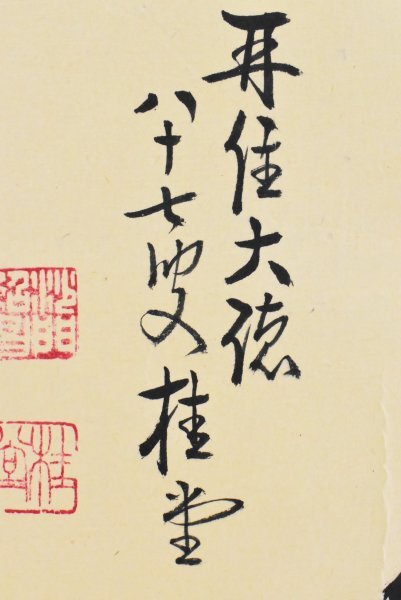 再住大徳
八十七叟桂堂